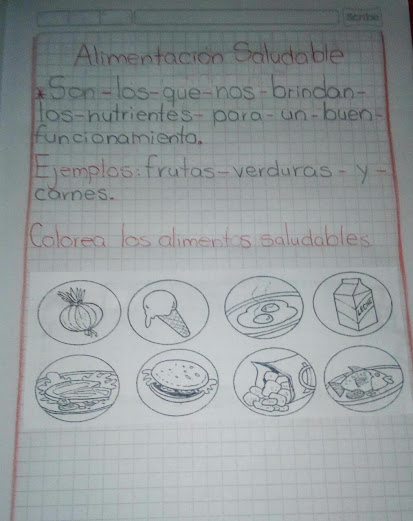 Scribe
Alimentación Saludable
* Son-los-que-nos-brindan-
los-nutrientes-para-un-buen-
funcionamiento.
Ejemplos: frutas-verduras-y-
carnes.
Colorea los alimentos saludables
LECHE